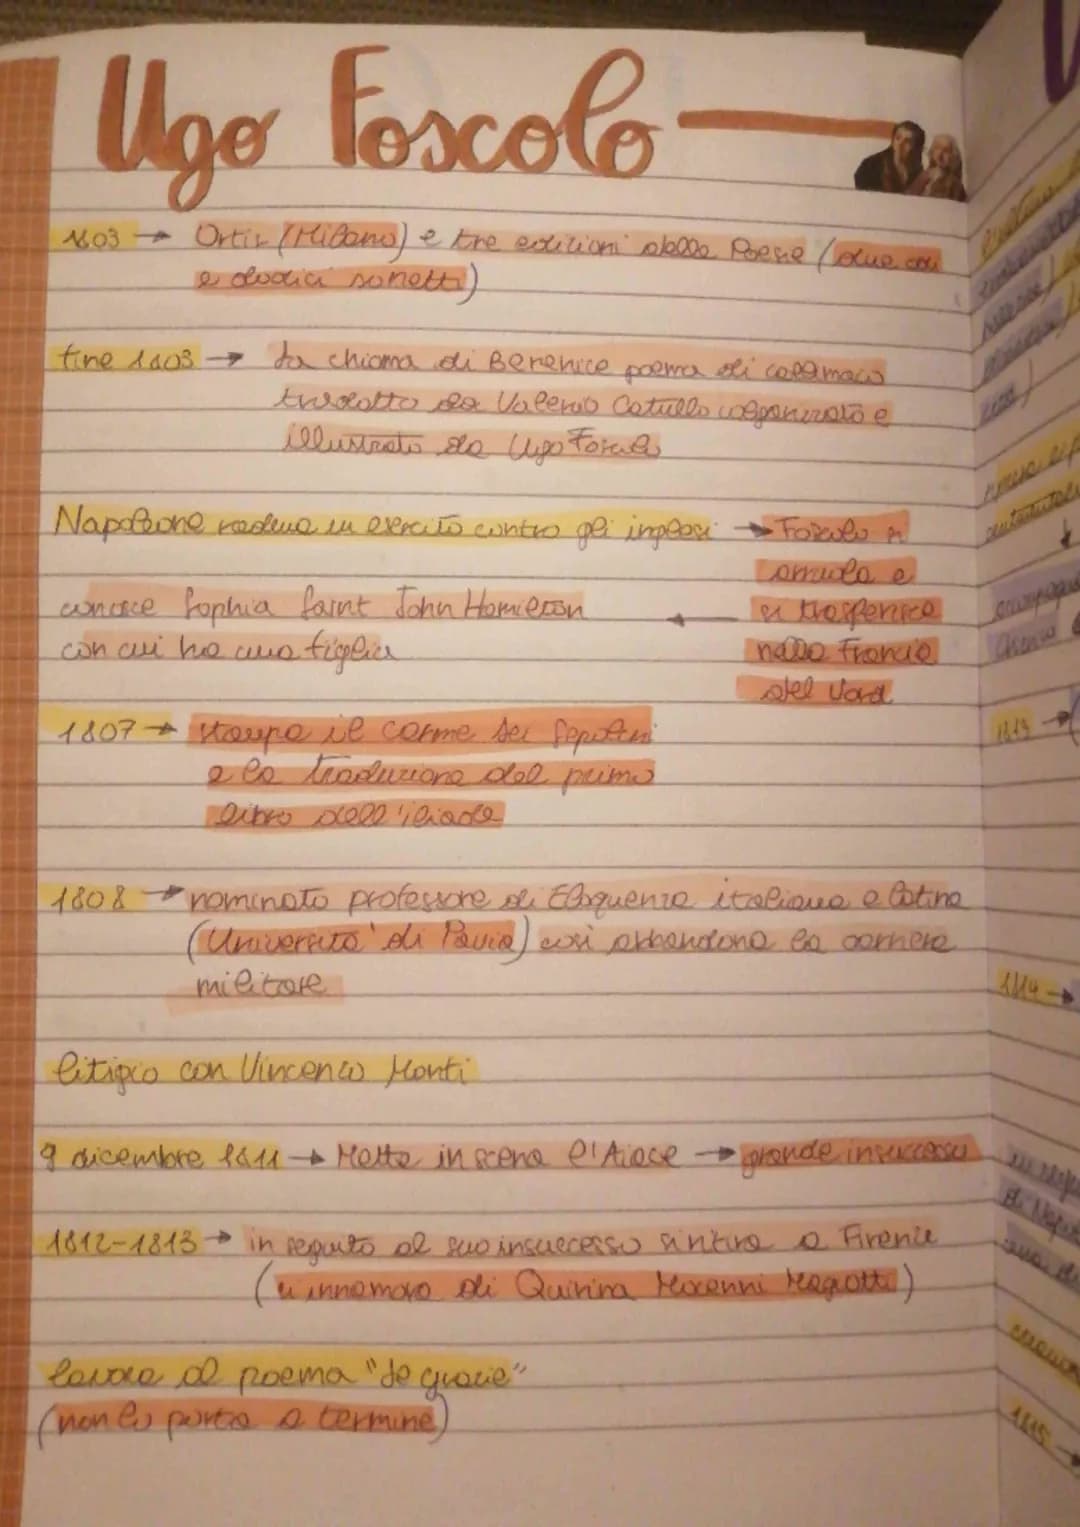 Ugo Foscolo
1803 → Ortis (Milano) e tre edizioni delle Poesie (due odi
e dodici sonetti)
fine 1803 → La chioma di Berenice poema di Callimaco
tradotto da Valerio Catullo volgarizzato e
illustrato da Ugo Foscolo
Napoleone raduna un esercito contro gli inglesi → Foscolo si
arruola e
conosce Sophia Saint John Hamilton ← si trasferisce
con cui ha una figlia nella Francia
del Nord
1807 → stampa il carme Dei Sepolcri
e la traduzione del primo
libro dell'iliade
1808 → nominato professore di Eloquenza italiana e latina
(Università di Pavia) così abbandona la carriera
militare
litigio con Vincenzo Monti
9 dicembre 1811 → Mette in scena l'Aiace → grande insuccesso
1812-1813 → in seguito al suo insuccesso si ritira a Firenze
(si innamora di Quirina Mocenni Magiotti)
lavora al poema "Le grazie"
(non lo porta a termine)
1813 →
1814 →
1815 →